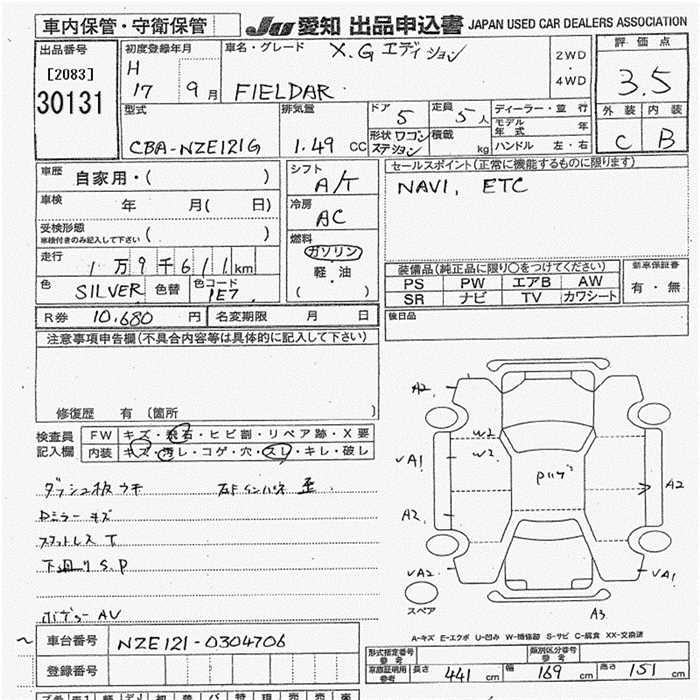 車内保管・守衛保管
JU 愛知 出品申込書 JAPAN USED CAR DEALERS ASSOCIATION
出品番号
[2083]
30131
初度登録年月
H
17 9 月
車名・グレード
X.G エディション
FIELDAR
2WD
4WD
評価点
3.5
外装 内装
C B
型式
CBA-NZE121G
排気量
1.49 CC
ドア 5
定員 5 人
形状 ワゴン
ステション
積載 kg
ディーラー・並行
モデル
年式 年
ハンドル 左・右
車歴 自家用・( )
車検 年 月( 日)
受検形態
車検付きのみ記入して下さい ( )
走行 1万9千611km
色 SILVER 色替 色コード 1E7
シフト
A/T
冷房
AC
燃料
ガソリン
軽・油
( )
セールスポイント(正常に機能するものに限ります)
NAVI, ETC
装備品(純正品に限り○をつけてください)
PS PW エアB AW
SR ナビ TV カワシート
新車保証書
有・無
後日品
R券 10,680 円 名変期限 月 日
注意事項申告欄(不具合内容等は具体的に記入して下さい)
修復歴 有 〔箇所 〕
検査員
記入欄
FW キズ・飛石・ヒビ割・リペア跡・X要
内装 キズ・汚レ・コゲ・穴・スレ・キレ・破レ
ダッシュ板ウキ
Dミラーキズ
下回りS.P
ボデーAV
A2
W2
W2
A1
A2
A2
A2
A1
A3
スペア
A-キズ E-エクボ U-凹み W-補修跡 S-サビ C-腐食 XX-交換済
車台番号 NZE121-0304706
登録番号
形式指定番号
参考
類別区分番号
参考
車庫証明用
参考
長さ 441 cm 幅 169 cm 高さ 151 cm